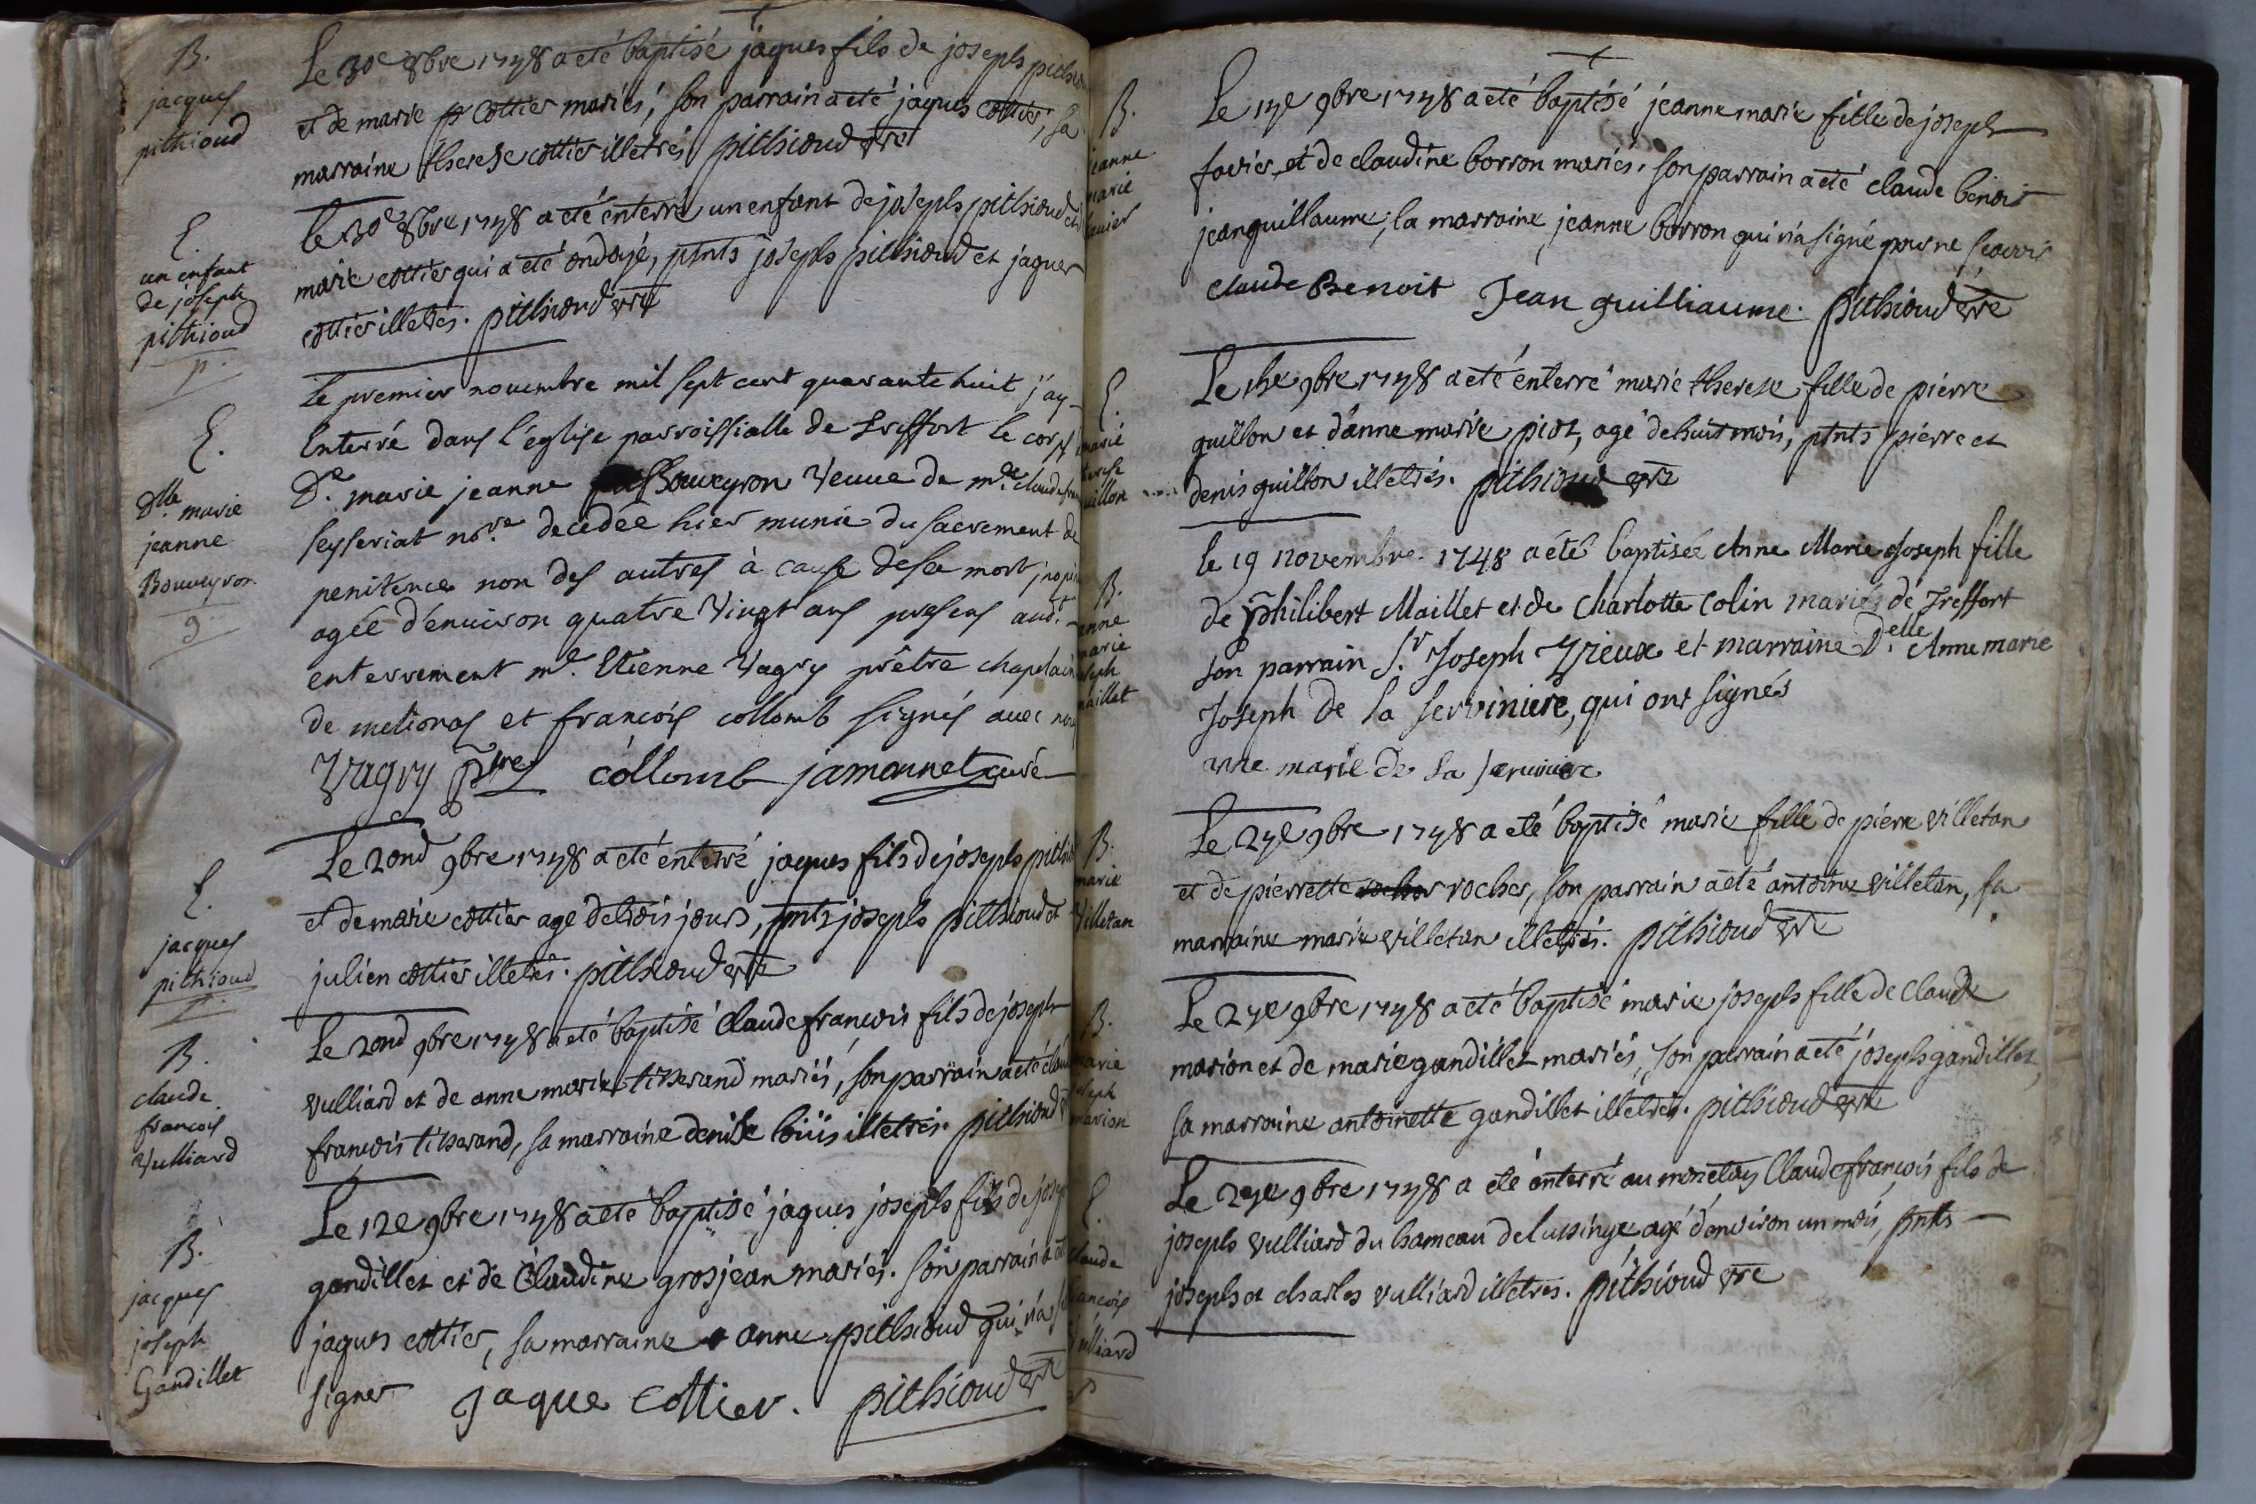 B.
jacques
pithioud
Le 30e 8bre 1748 a eté baptisé jaques fils de joseph
et de marie cottier mariés, son parrain a eté jaques cottier, sa
marraine therese cottier illetrés pithioud vre
E.
un enfant
de joseph
pithioud
p.
le 30e 8bre 1748 a eté enterré un enfant de joseph pithioud et
marie cottier qui a eté ondoyé, ptnts joseph pithioud et jaques
cottier illetrés. pithioud vre
E.
Dlle marie
jeanne
Bouveyron
9.
Le premier novembre mil sept cent quarante huit j'ay
Enterré dans l'église parroissialle de treffort le corps
De. marie jeanne Bouveyron veuve de mre claude
seyseriat nore decedée hier munie du sacrement de
penitence non des autres à cause de sa mort
agée d'environ quatre vingt ans presens aud.t
enterrement mre Etienne Vagry prêtre chapelain
de melionas et françois collomb signés avec
Vagry ptre collomb jamonnet curé
E.
jacques
pithioud
p.
Le 2ond 9bre 1748 a eté enterré jaques fils de joseph
et de marie cottier agé de trois jours, pnts joseph pithioud et
julien cottier illetrés. pithioud vre
B.
claude
francois
Vulliard
Le 2ond 9bre 1748 a eté baptisé Claude francois fils de joseph
vulliard et de anne marie tisserand mariés, son parrain a eté
francois tisserand, sa marraine denise illetrés. pithioud
B.
jacques
joseph
Gandillet
Le 12e 9bre 1748 a eté baptisé jaques joseph fils de
gandillet et de Claudine grosjean mariés. son parrain a
jaques cottier, sa marraine anne pithioud qui n'a
signer jaque Cottier. pithioud vre
B.
jeanne
marie
favier
Le 17e 9bre 1748 a eté baptisé jeanne marie fille de joseph
favier et de claudine borron mariés. son parrain a eté claude benoit
jean guillaume, la marraine jeanne borron qui n'a signé pour ne scavoir
claude Benoit Jean guilliaume. pithioud vre
E.
marie
therese
guillon
Le 18e 9bre 1748 a eté enterré marie therese fille de pierre
guillon et d'anne marie piot, agé de huit mois, ptnts pierre et
denis guillon illetrés. pithioud vre
B.
anne
marie
joseph
maillet
le 19 novembre 1748 a été baptisée Anne Marie Joseph fille
de philibert Maillet et de Charlotte Colin mariés de Treffort
son parrain Sr Joseph Yrieux et marraine Delle Anne marie
Joseph De la Serviniere, qui ont signés
anne marie de la serviniere
B.
marie
Villetan
Le 27e 9bre 1748 a eté baptisé marie fille de pierre villetan
et de pierrette rocher, son parrain a eté antoine villetan, sa
marraine marie villetan illetrés. pithioud vre
B.
marie
joseph
marion
Le 27e 9bre 1748 a eté baptisé marie joseph fille de claude
marion et de marie gandillet mariés, son parrain a eté joseph gandillet,
sa marraine antoinette gandillet illetrés. pithioud vre
E.
claude
francois
vulliard
p
Le 27e 9bre 1748 a eté enterré au monetay Claude françois fils de
joseph vulliard du hameau de lussinge agé d'environ un mois, pnts
joseph et charles vulliard illetres. pithioud vre